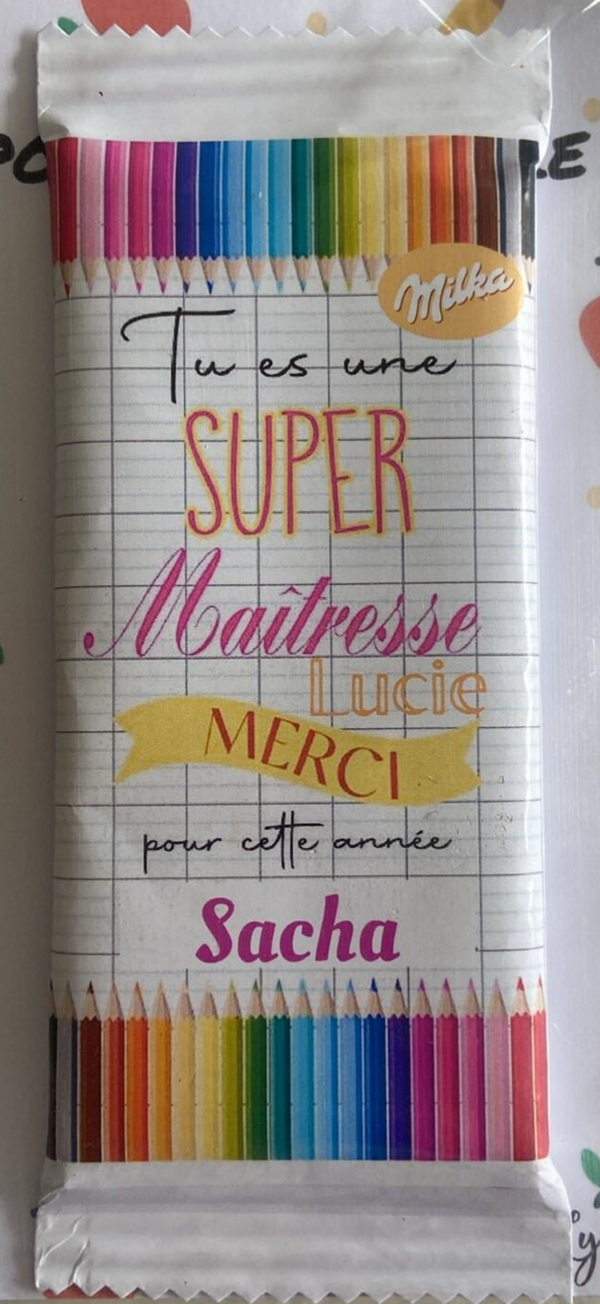 Milka
Tu es une
SUPER
Maîtresse
Lucie
MERCI
pour cette année
Sacha